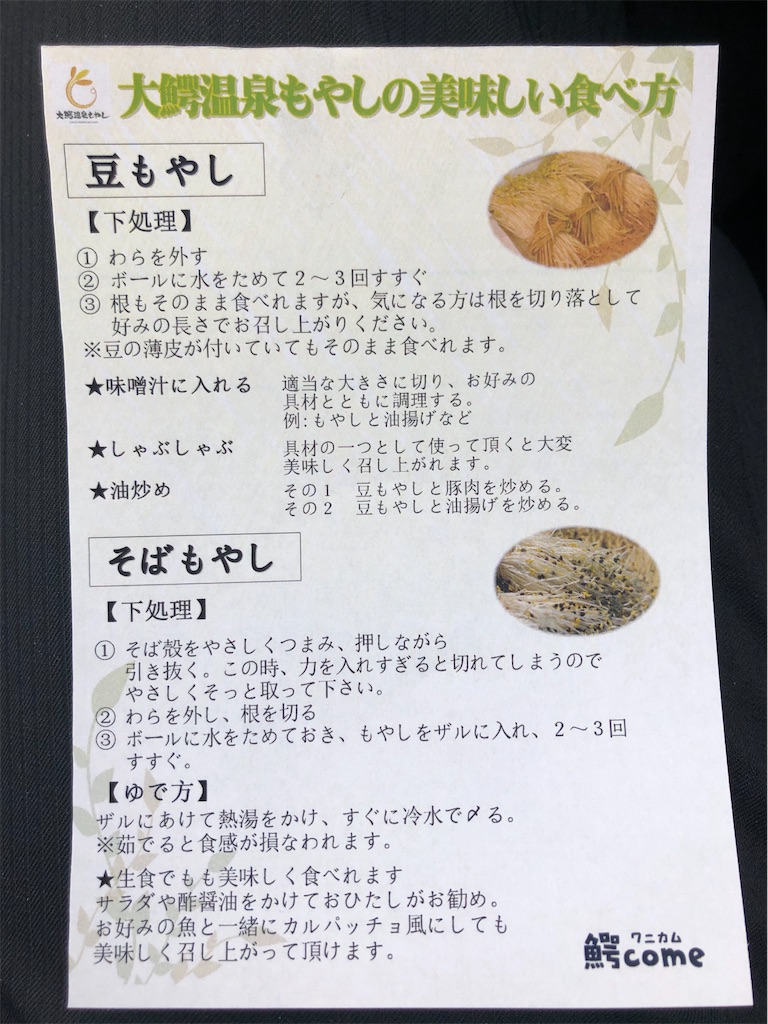 大鰐温泉もやし
大鰐温泉もやしの美味しい食べ方
豆もやし
【下処理】
① わらを外す
② ボールに水をためて２～３回すすぐ
③ 根もそのまま食べれますが、気になる方は根を切り落として
好みの長さでお召し上がりください。
※豆の薄皮が付いていてもそのまま食べれます。
★味噌汁に入れる 適当な大きさに切り、お好みの
具材とともに調理する。
例:もやしと油揚げなど
★しゃぶしゃぶ 具材の一つとして使って頂くと大変
美味しく召し上がれます。
★油炒め その１ 豆もやしと豚肉を炒める。
その２ 豆もやしと油揚げを炒める。
そばもやし
【下処理】
① そば殻をやさしくつまみ、押しながら
引き抜く。この時、力を入れすぎると切れてしまうので
やさしくそっと取って下さい。
② わらを外し、根を切る
③ ボールに水をためておき、もやしをザルに入れ、２～３回
すすぐ。
【ゆで方】
ザルにあけて熱湯をかけ、すぐに冷水で〆る。
※茹でると食感が損なわれます。
★生食でもも美味しく食べれます
サラダや酢醤油をかけておひたしがお勧め。
お好みの魚と一緒にカルパッチョ風にしても
美味しく召し上がって頂けます。
ワニカム
鰐come